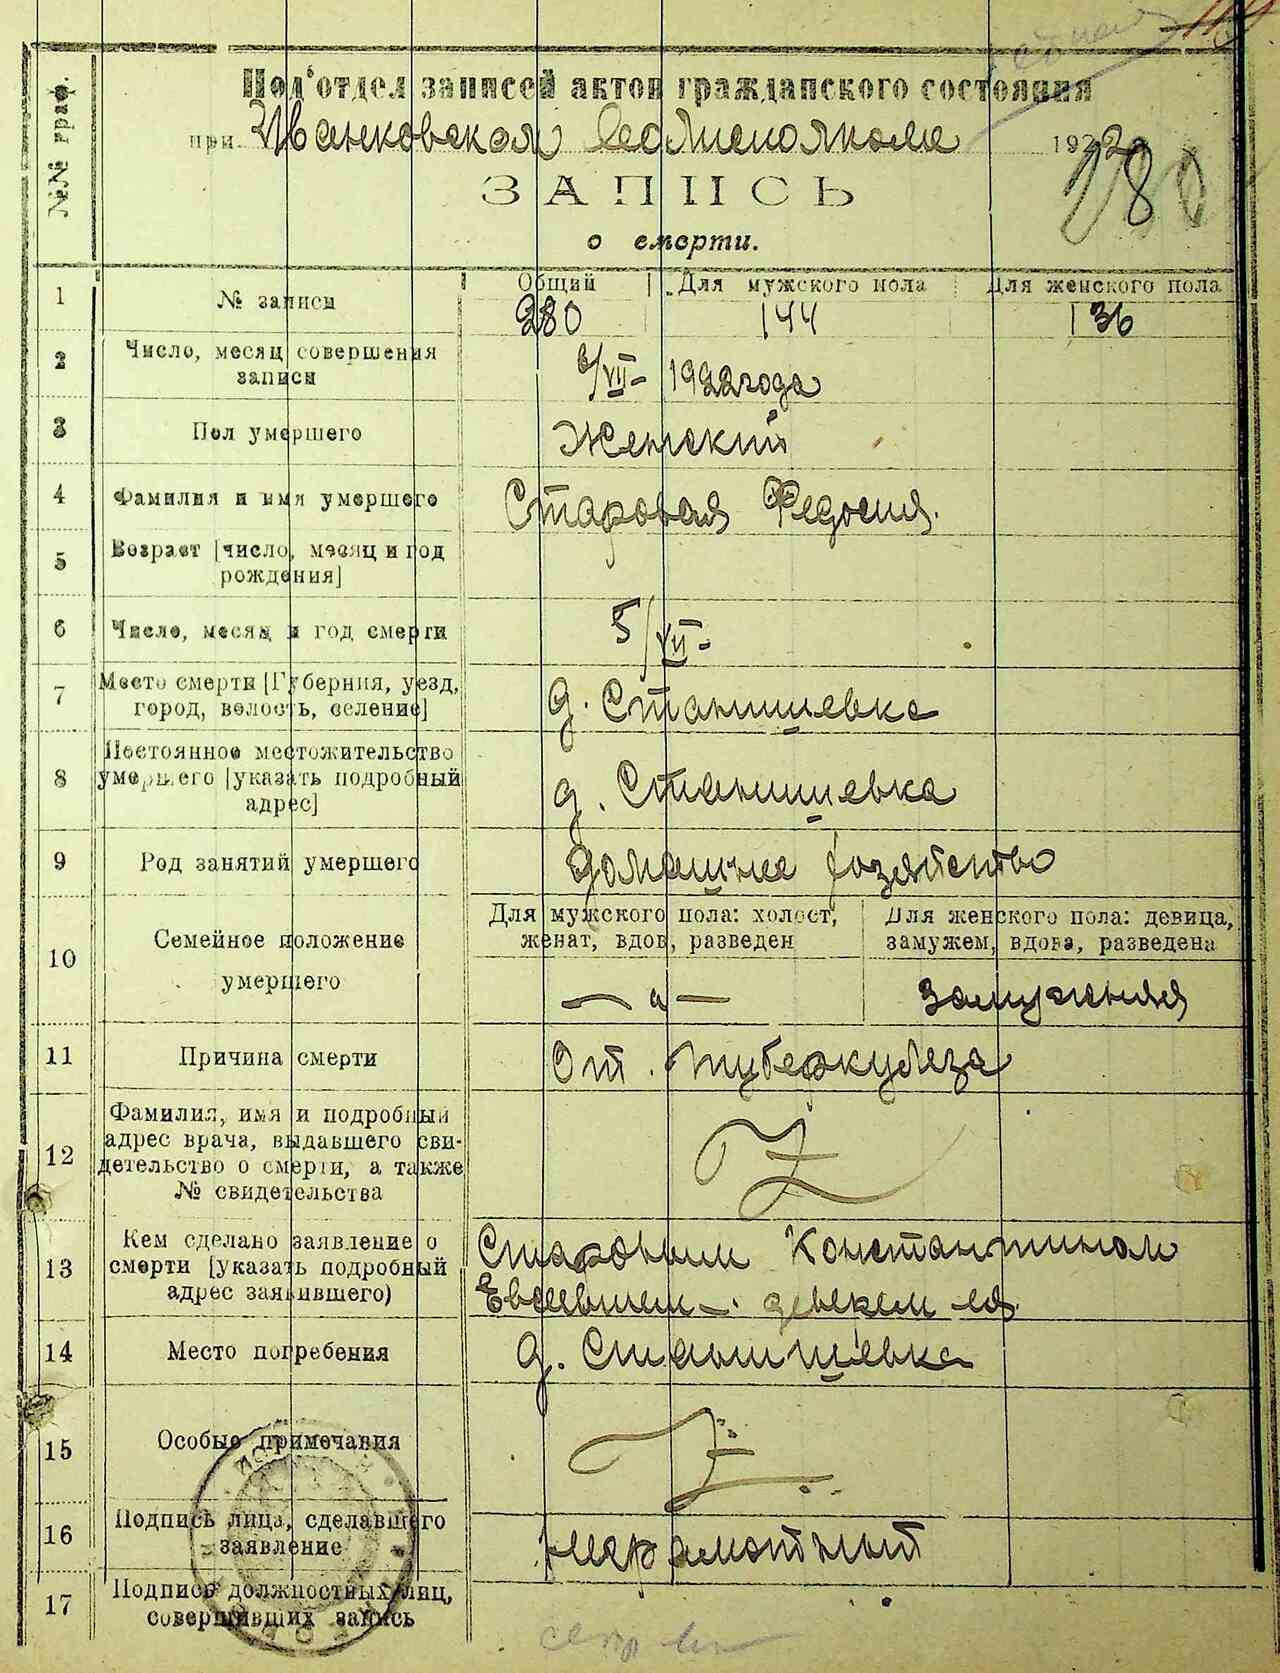 №№ граф.
Под'отдел записей актов гражданского состояния
при Иванковском Волисполкоме 1922
280
ЗАПИСЬ
о смерти.
1 № записи Общий Для мужского пола Для женского пола
280 144 136
2 Число, месяц совершения
записи
6/VII- 1922 года
3 Пол умершего Женский
4 Фамилия и имя умершего Старовая Федосия.
5 Возраст [число, месяц и год
рождения]
6 Число, месяц и год смерти 5/VII-
7 Место смерти [Губерния, уезд,
город, волость, селение]
д. Станишевка
8 Постоянное местожительство
умершего [указать подробный
адрес]
д. Станишевка
9 Род занятий умершего домашнее хозяйство
10 Семейное положение
умершего
Для мужского пола: холост,
женат, вдов, разведен
Для женского пола: девица,
замужем, вдова, разведена
замужняя
11 Причина смерти От туберкулеза
12 Фамилия, имя и подробный
адрес врача, выдавшего сви-
детельство о смерти, а также
№ свидетельства
13 Кем сделано заявление о
смерти [указать подробный
адрес заявившего)
Старовым Константином
14 Место погребения д. Станишевка
15 Особые примечания
16 Подпись лица, сделавшего
заявление
неграмотный
17 Подпись должностных лиц,
совершивших запись